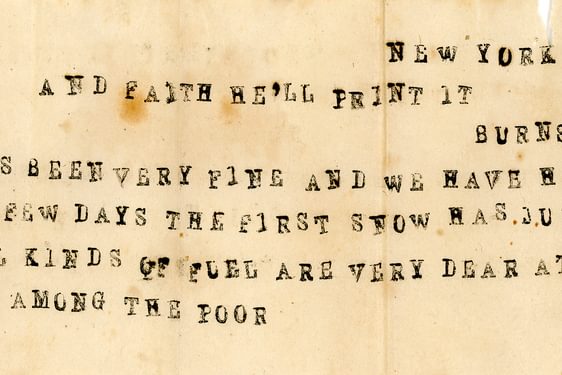 NEW YORK
AND FAITH HE'LL PRINT IT
BURNS
S BEEN VERY FINE AND WE HAVE H
FEW DAYS THE FIRST SNOW HAS JU
L KINDS OF FUEL ARE VERY DEAR AT
AMONG THE POOR